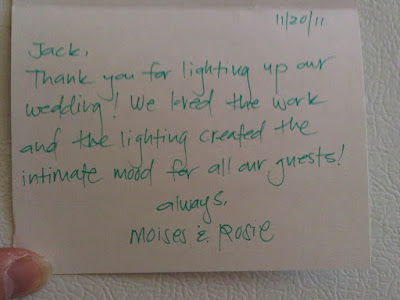 11/20/11
Jack,
Thank you for lighting up our
wedding! We loved the work
and the lighting created the
intimate mood for all our guests!
always,
Moises & Rosie